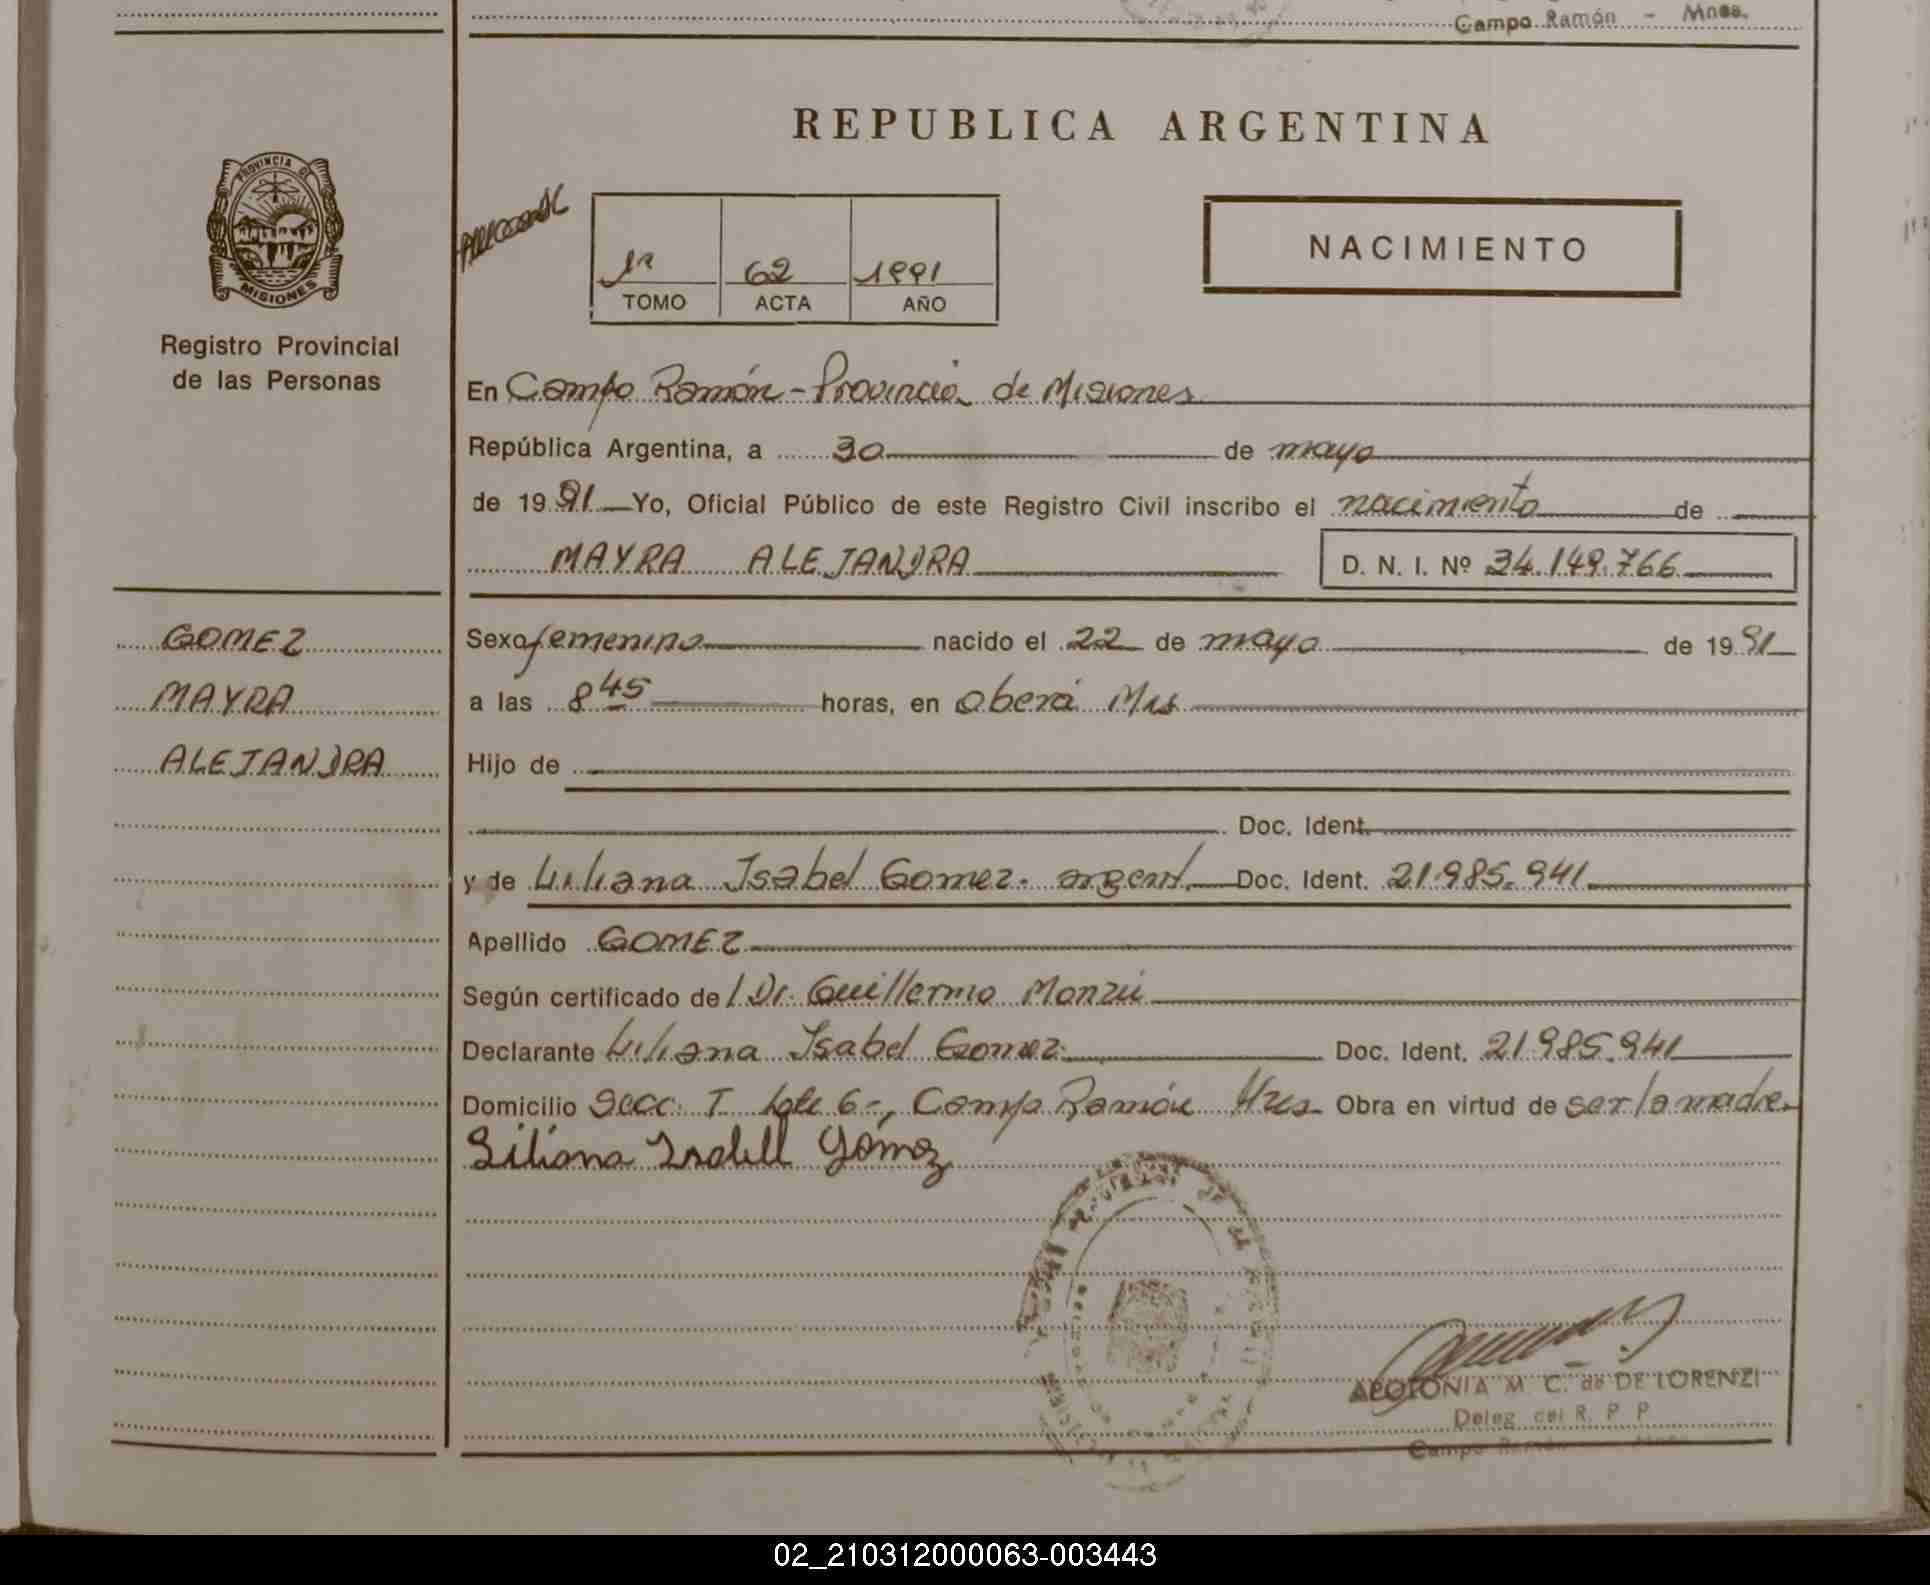 Campo Ramón - Mnes.
REPUBLICA ARGENTINA
PROVINCIA DE
MISIONES
Registro Provincial
de las Personas
1º 62 1991
TOMO ACTA AÑO
NACIMIENTO
En Campo Ramón - Provincia de Misiones
República Argentina, a 30 de mayo
de 1991 Yo, Oficial Público de este Registro Civil inscribo el nacimiento de
MAYRA ALEJANDRA D. N. I. Nº 34.149.766
GOMEZ
MAYRA
ALEJANDRA
Sexo femenino nacido el 22 de mayo de 1991
a las 8 45 horas, en Oberá Mns
Hijo de
Doc. Ident.
y de Liliana Isabel Gomez. argent. Doc. Ident. 21.985.941
Apellido GOMEZ
Según certificado del Dr. Guillermo Monzú
Declarante Liliana Isabel Gomez. Doc. Ident. 21.985.941
Domicilio Secc. I Lote 6-, Campo Ramón Mnes Obra en virtud de ser la madre.
Liliana Isabell Gómez
APOLONIA M. C. de DE LORENZI
Deleg. del R. P. P.
Campo Ramón
02_210312000063-003443